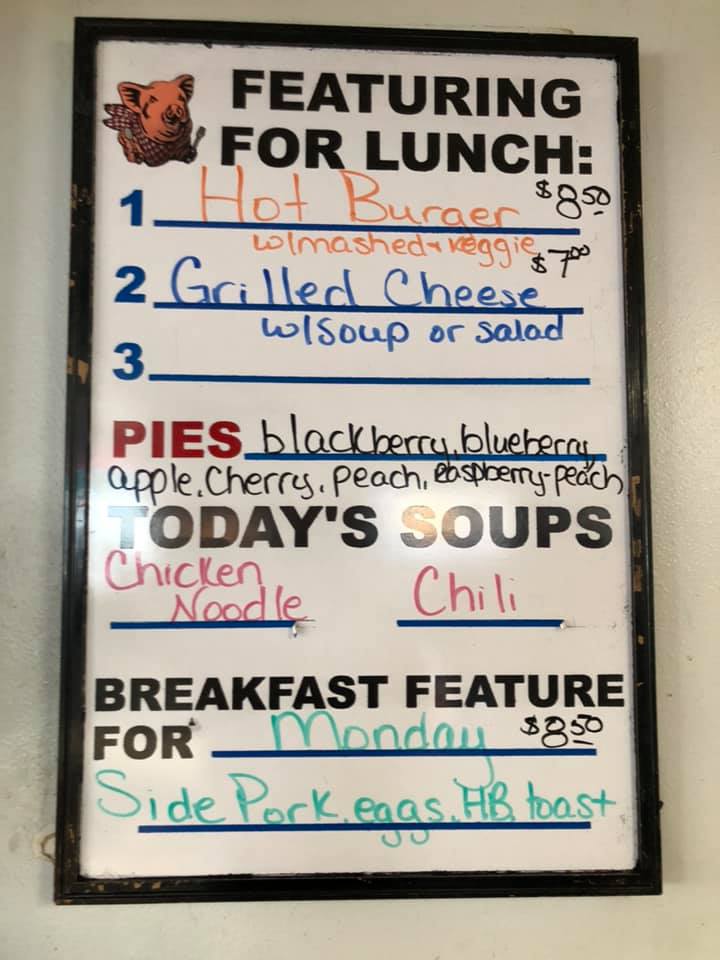 FEATURING
FOR LUNCH:
1 Hot Burger $8.50
w/mashed + veggie
2 Grilled Cheese $7.00
w/Soup or salad
3
PIES blackberry, blueberry,
apple, Cherry, peach, raspberry-peach
TODAY'S SOUPS
Chicken Noodle
Chili
BREAKFAST FEATURE
FOR Monday $8.50
Side Pork, eggs, HB, toast